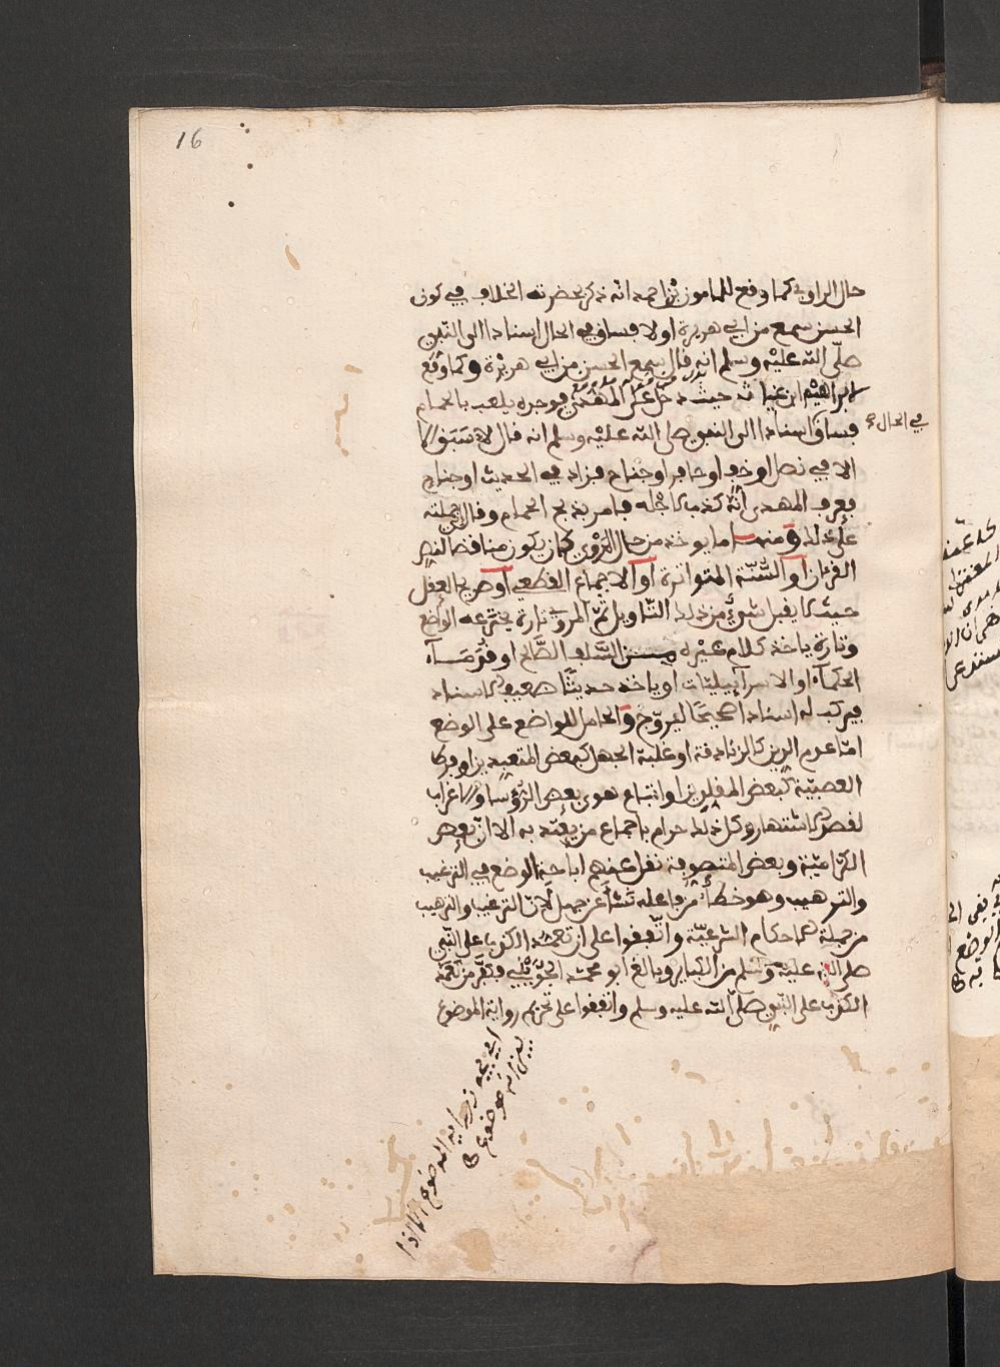 16
حال الراوي كما وقع للمامون بن احمد انه ذكر بحضرته الخلاف في كون
الحسن سمع من ابي هريرة اولا فساق في الحال اسنادا الى النبي
صلى الله عليه وسلم انه قال سمع الحسن من ابي هريرة وكما وقع
لابراهيم ابن غياث حيث دخل على المهدي فوجده يلعب بالحمام
فساق اسنادا الى النبي صلى الله عليه وسلم انه قال لا سبق
في الحال
الا في نصل او خف او حافر او جناح فزاد في الحديث او جناح
فعرف المهدي انه كذب لاجله فامر بذبح الحمام وقال حملته
على ذلك ومنها ما يوخذ من حال المروي كان يكون مناقضا لنص
القرءان او السنة المتواترة او الاجماع القطعي او صريح العقل
حيث لا يقبل شيء من ذلك التاويل ثم المروي تارة يخترعه الواضع
وتارة ياخذ كلام غيره من السلف الصالح او قدماء
الحكماء او الاسراييليات او ياخذ حديثا ضعيف الاسناد
فيركب له اسنادا صحيحا ليروج والحامل للواضع على الوضع
اما عدم الدين كالزنادقة او غلبة الجهل كبعض المتعبدين او فرط
العصبية كبعض المقلدين او اتباع هوى بعض الرؤسا او الاغراب
لقصد الاشتهار وكل ذلك حرام باجماع من يعتد به الا ان بعض
الكرامية وبعض المتصوفة نقل عنهم اباحة الوضع في الترغيب
والترهيب وهو خطأ من فاعله نشأ عن جهل لان الترغيب والترهيب
من جملة الاحكام الشرعية واتفقوا على ان تعمد الكذب على النبي
صلى الله عليه وسلم من الكباير وبالغ ابو محمد الجويني فكفر من تعمد
الكذب على النبي صلى الله عليه وسلم واتفقوا على تحريم رواية الموضوع
الموضوع الا اذا
بين انه موضوع